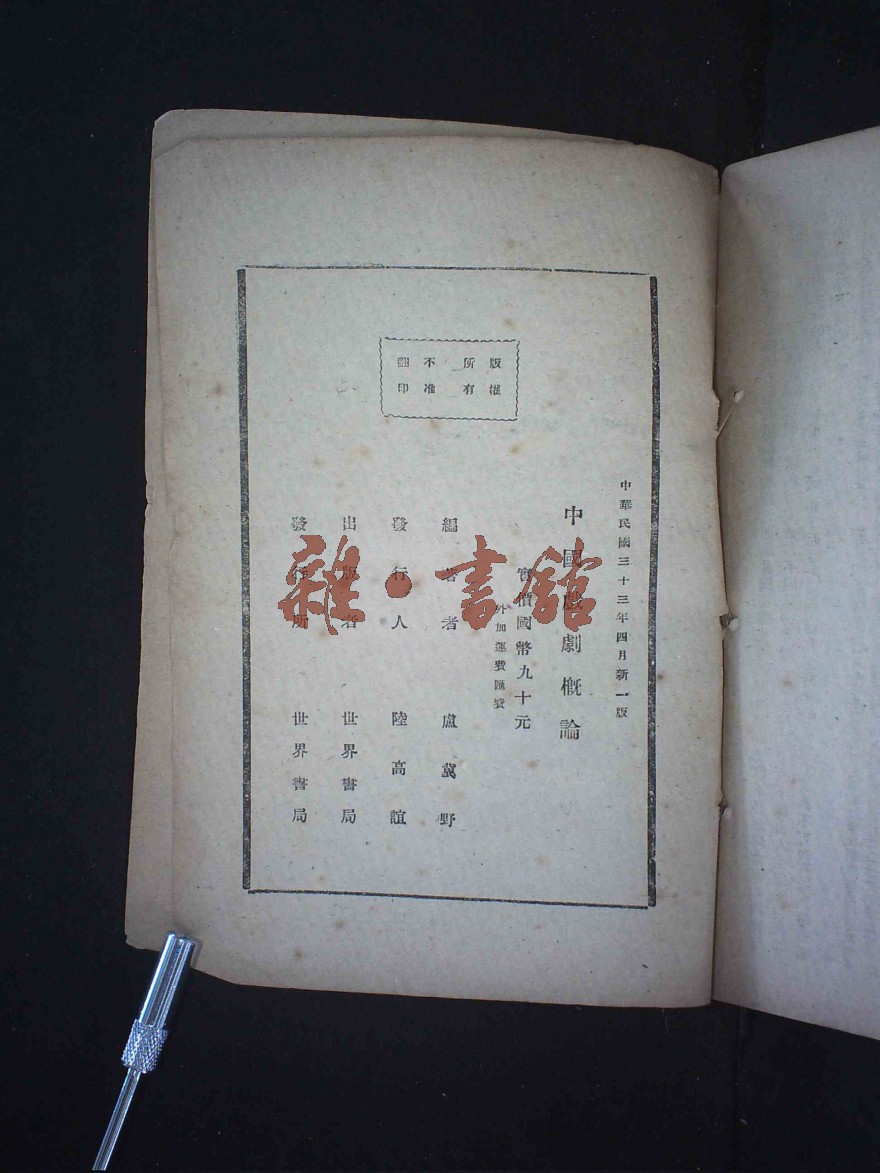 版權所有
不准翻印
中華民國三十三年四月新一版
中國戲劇概論
實價國幣九十元
外加運費匯費
編著者 盧冀野
發行人 陸高誼
出版者 世界書局
發行所 世界書局
雜·書館